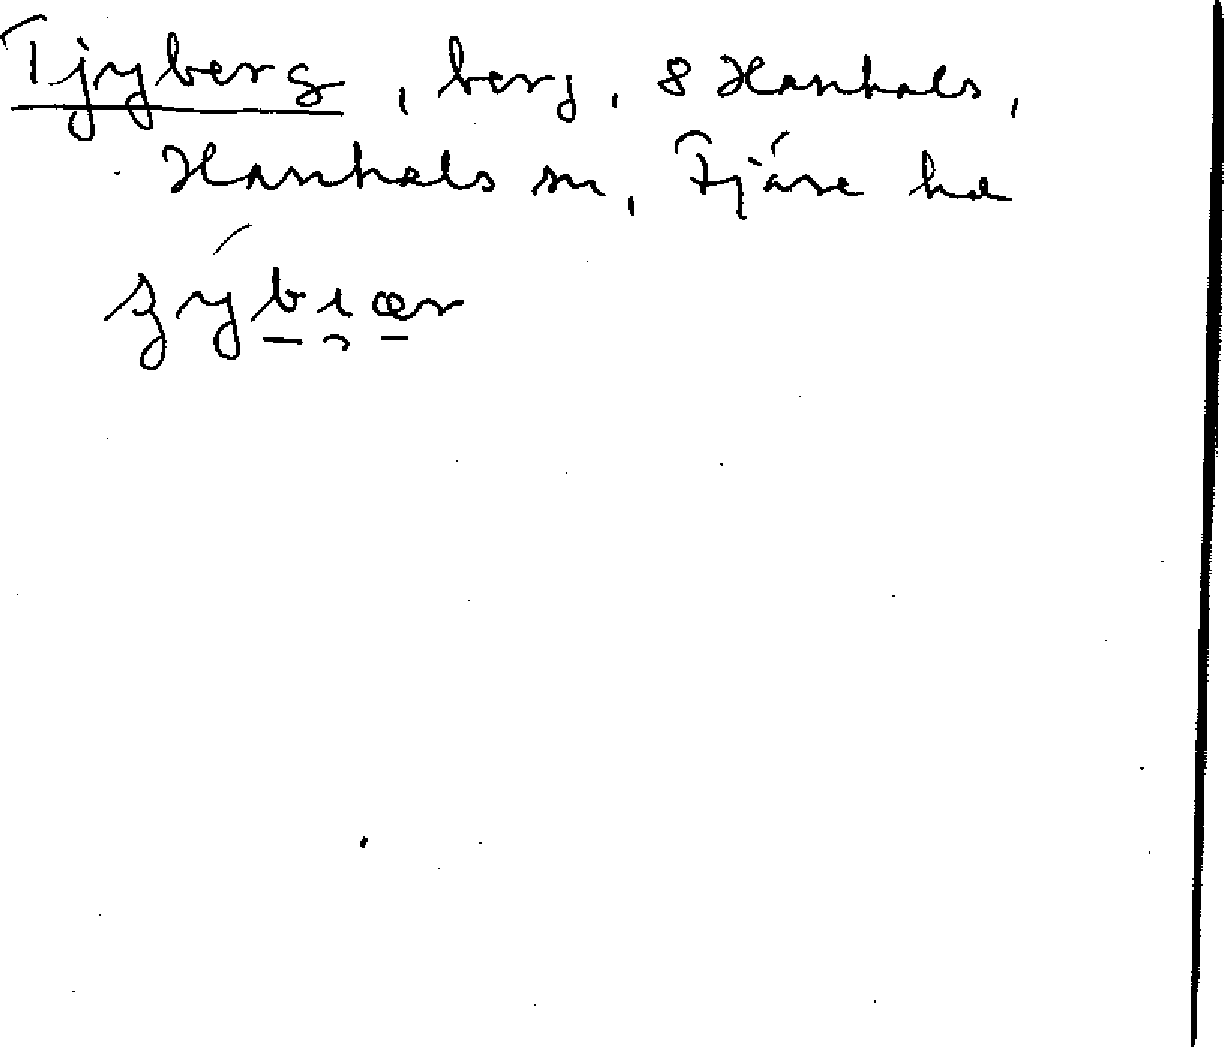 Tjyberg, berg, 8 Hanhals,
Hanhals sn, Fjäre hd